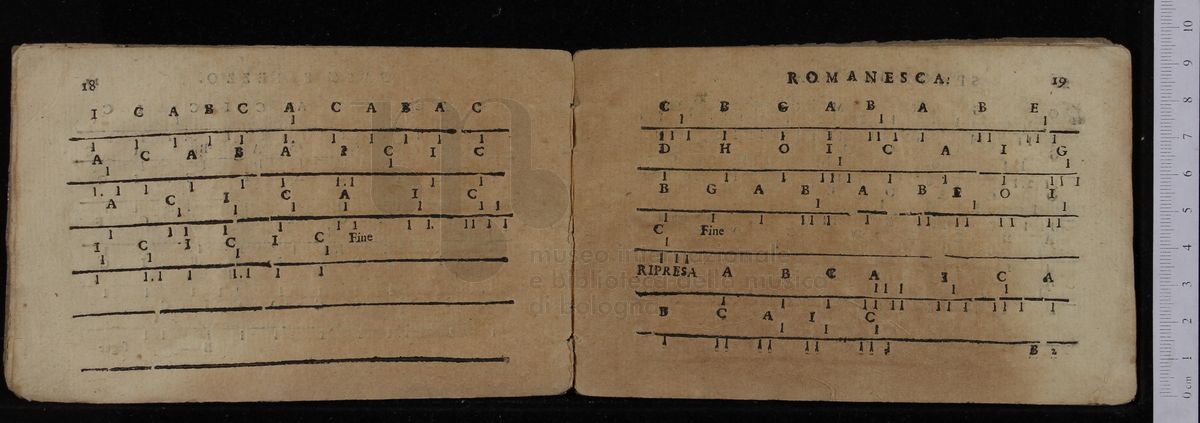 18
I C A B C A C A B A C
A C A B A I C I C
A C I C A I C
I C I C I C Fine
ROMANESCA. 19
C B G A B A B E
D H O I C A I G
B G A B A B E O I
C Fine
RIPRESA A B C A I C A
B C A I C
B 2
museo internazionale
e biblioteca della musica
di bologna
0 cm 1 2 3 4 5 6 7 8 9 10